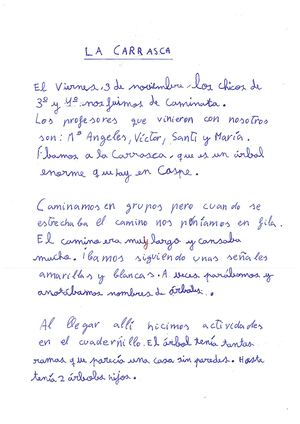 LA CARRASCA
El Viernes, 3 de noviembre los chicos de
3º y 4º nos fuimos de Caminata.
Los profesores que vinieron con nosotros
son: Mª Angeles, Víctor, Santi y María.
Íbamos a la Carrasca, que es un árbol
enorme que hay en Caspe.
Caminamos en grupos pero cuando se
estrechaba el camino nos poníamos en fila.
El camino era muy largo y cansaba
mucho. Íbamos siguiendo unas señales
amarillas y blancas. A veces parábamos y
anotábamos nombres de árboles.
Al llegar allí hicimos actividades
en el cuadernillo. El árbol tenía tantas
ramas que parecía una casa sin paredes. Hasta
tenía 2 árboles hijos.